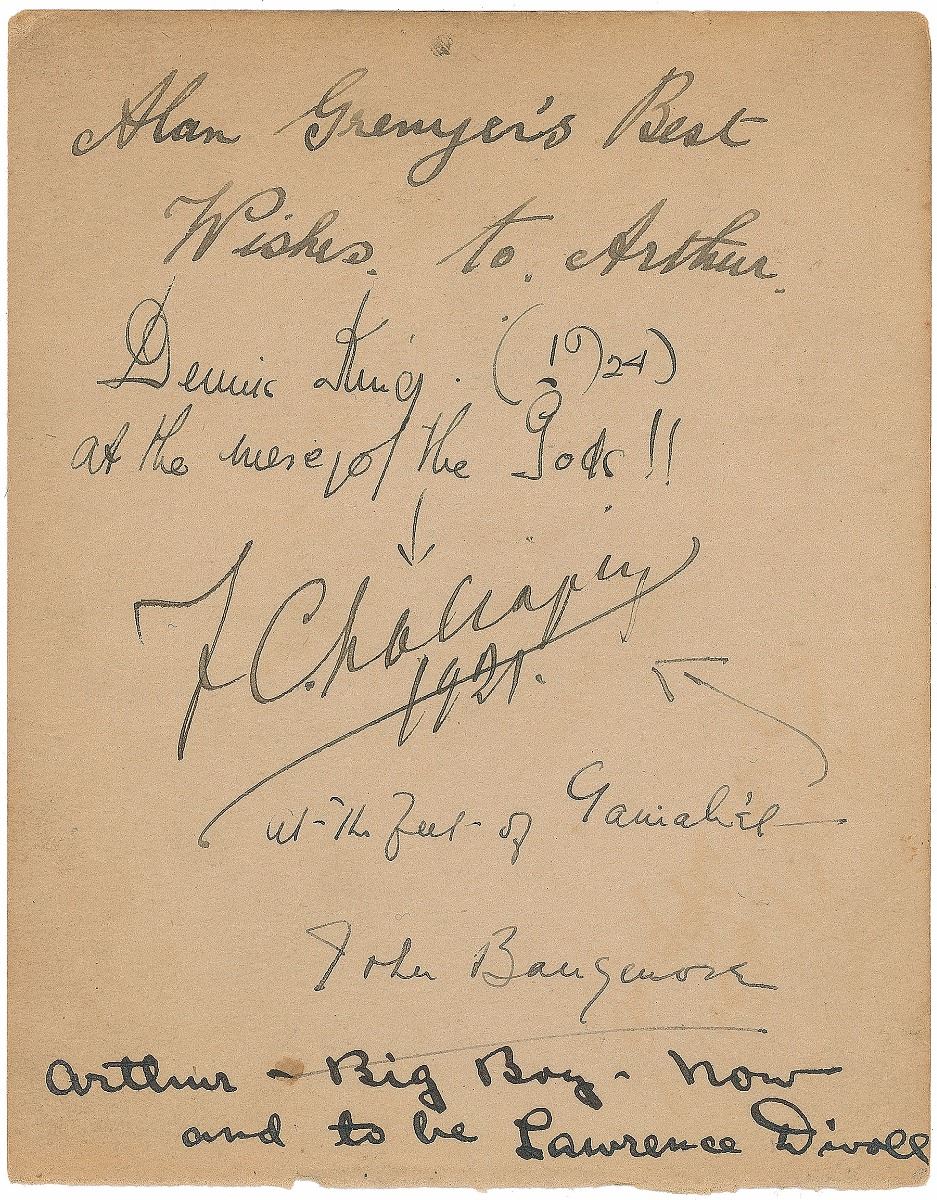 Alan Grenyer's Best
Wishes. to. Arthur.
Dennis King. (1924)
at the mercy of the Gods!!
F Chaliapin
1921.
at the feet of Gamaliel
John
Arthur - Big Boy - Now
and to be Lawrence Divoll